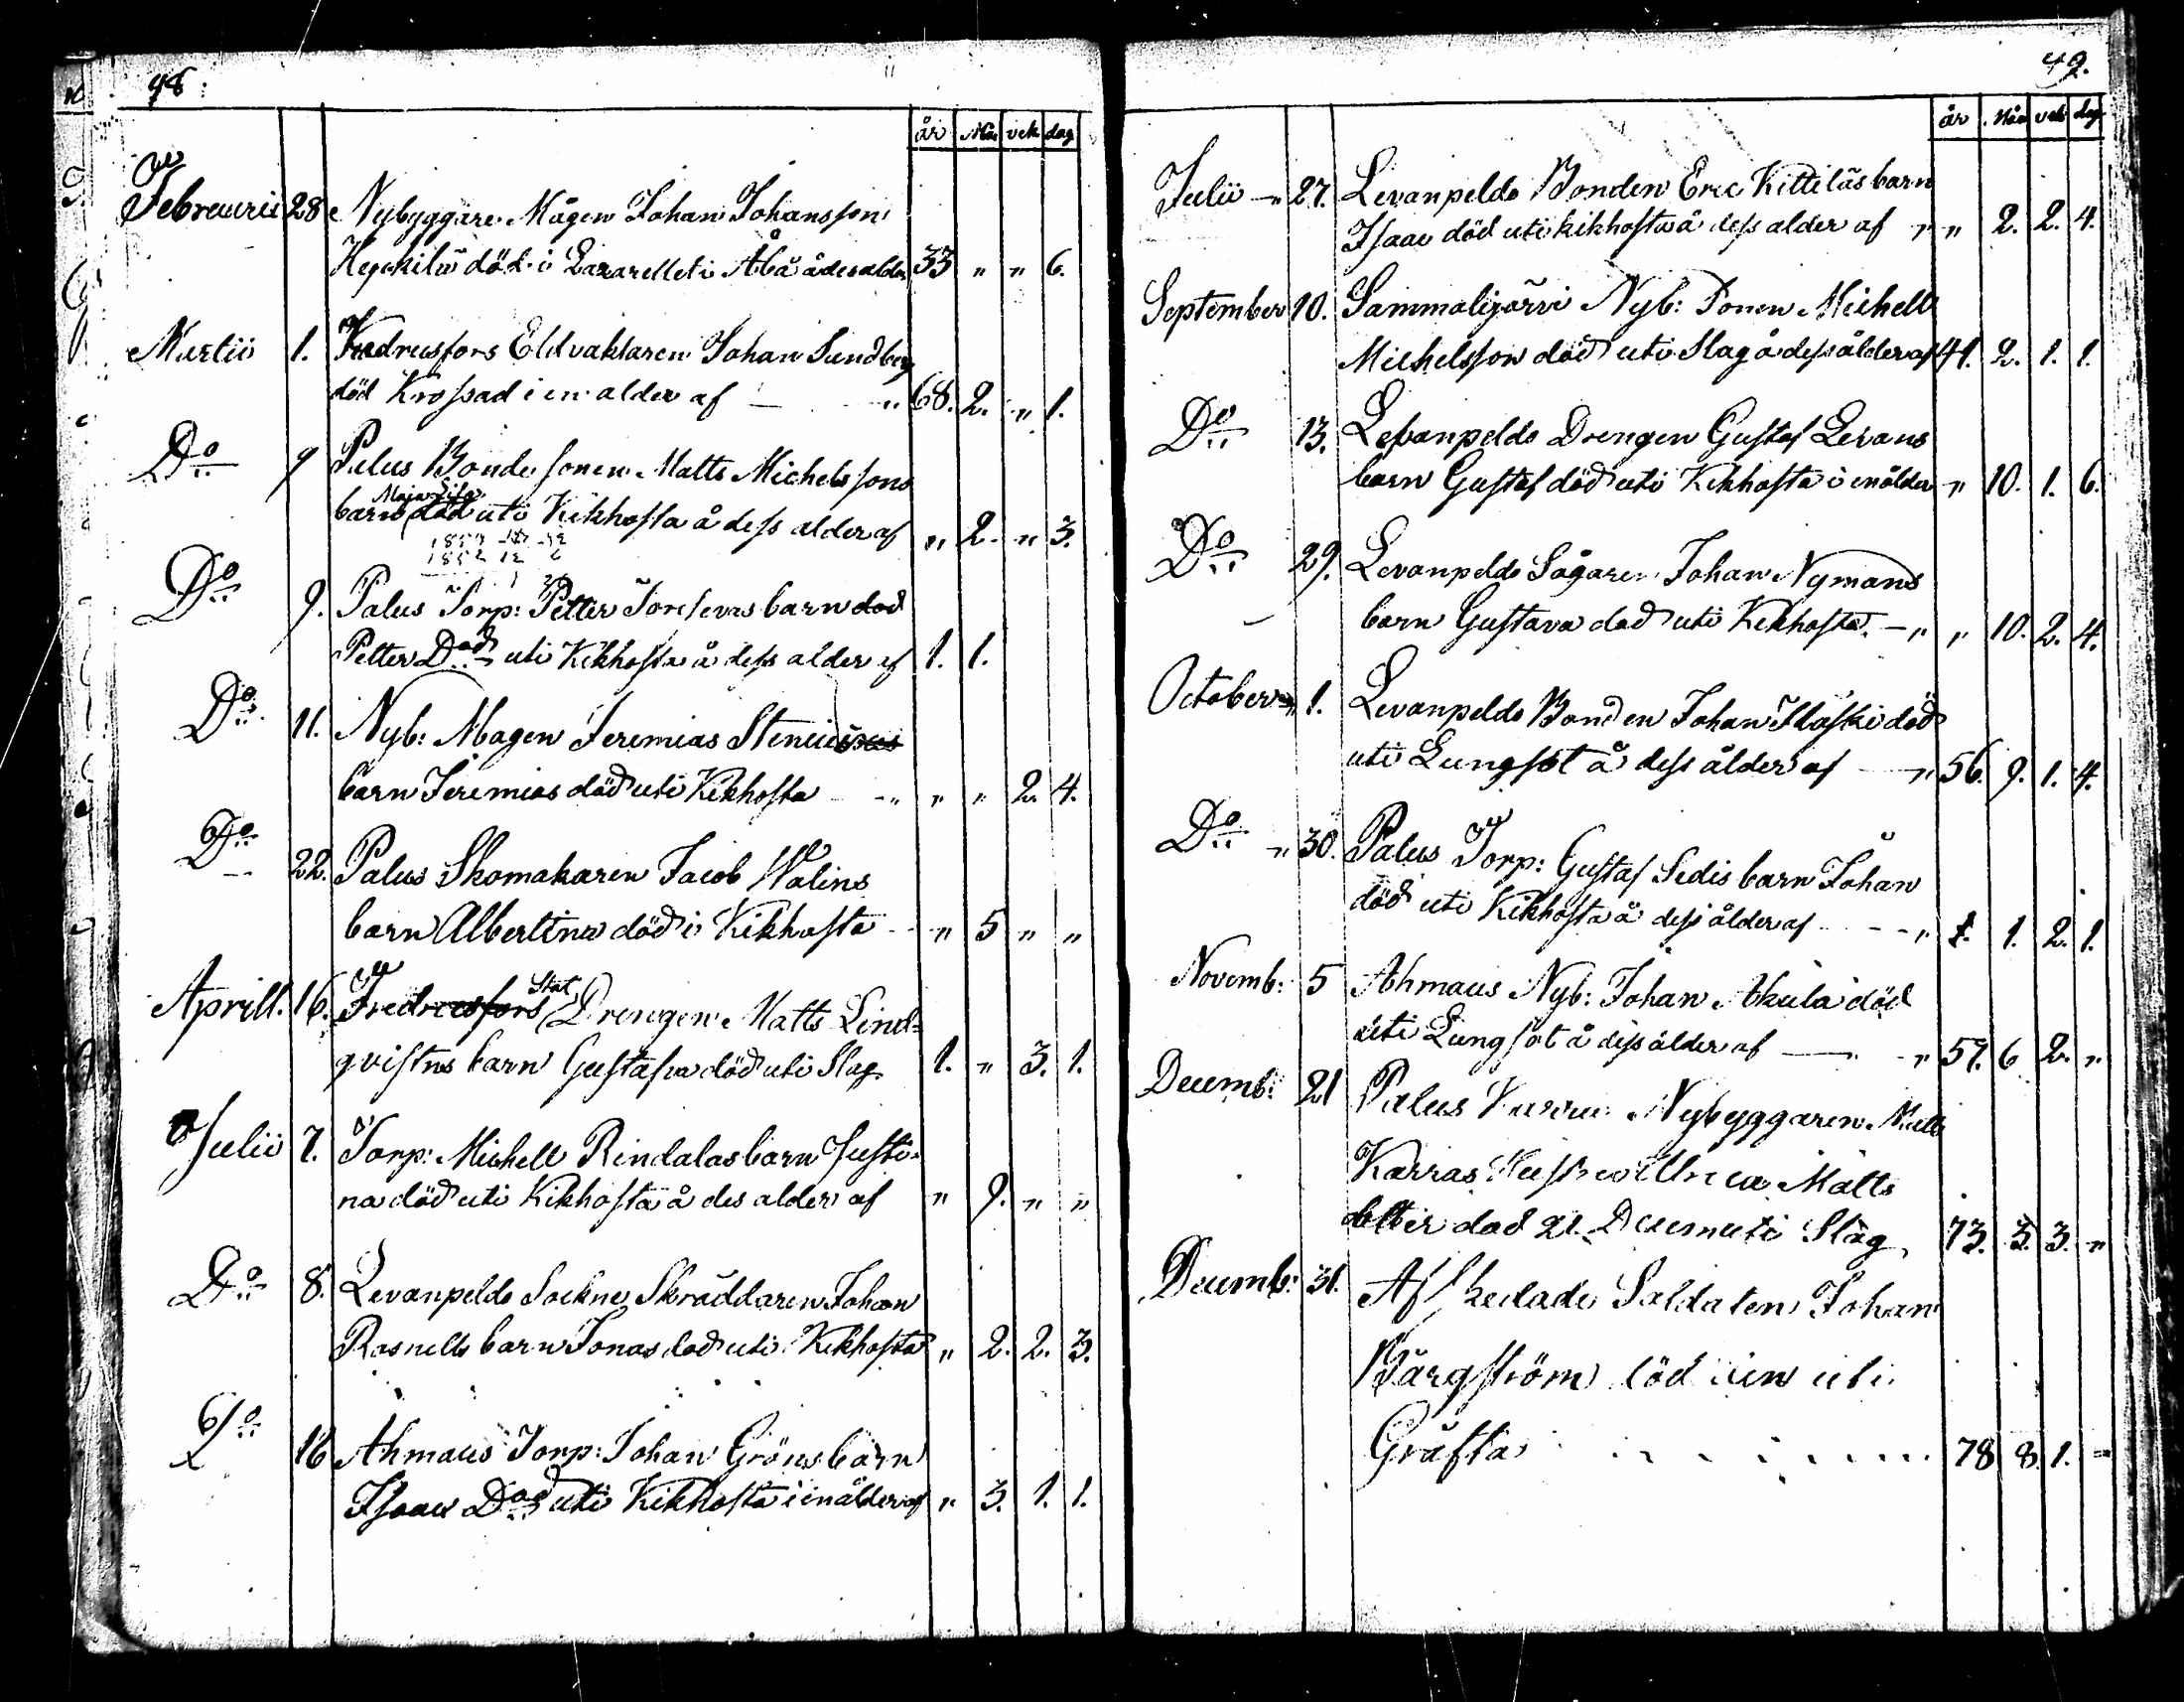 48.
år Mån vek dag
Februarii 28 Nybyggare Mågen Johan Johansson
Heyckilä död i Lazarettet i Åbo å des alder 33 " " 6.
Martii 1. Fredricsfors Eldvaktaren Johan Sundberg
död Krossad i en alder af — " 68. 2. " 1.
Do 9 Palus Bonde sonen Matts Michelssons
Maja Lisa
barn död uti Kikhosta å dess alder af " 2. " 3.
Do 9. Palus Torp: Petter barn död
Petter Död uti Kikhosta å dess alder af 1. 1.
Do 11. Nyb: Mågen Jeremias
barn Jeremias död uti Kikhosta — " " " 2. 4.
Do 22. Palus Skomakaren Jacob Walins
barn Albertina död i Kikhosta " 5 " "
Stat
Aprill. 16. Fredricsfors Drengen Matts Lind=
qvistns barn Gustafva död uti Slag 1. " 3. 1.
Julii 7. Torp: Michell Rindalas barn Justi=
na död uti Kikhosta å des alder af " 9. " "
Do 8. Levanpeldo Sockne Skräddaren Johan
Rosnells barn Jonas död uti Kikhosta " 2. 2. 3.
Do 16 Ahmaus Torp: Johan Gröns barn
Isaac Död uti Kikhosta i en ålder af " 3. 1. 1.
49.
år Mån vek dag
Julii — 27. Levanpeldo Bonden Eric Kittiläs barn
Isaac död uti kikhosta å dess alder af " " 2. 2. 4.
September 10. Sammalijärvi Nyb: Sonen Michell
Michelsson död uti Slag å dess ålder af 41. 2. 1. 1.
Do 13. Levanpeldo Drengen Gustaf Levans
barn Gustaf död uti Kikhosta i en ålder " 10. 1. 6.
Do 29. Levanpeldo Sågaren Johan Nymans
barn Gustava död uti Kikhosta — " " 10. 2. 4.
October " 1. Levanpeldo Bonden Johan död
uti Lungsot å dess ålder af — " 56. 9. 1. 4.
Do " 30. Palus Torp: Gustaf Sedis barn Johan
död uti Kikhosta å dess ålder af — " 1. 1. 2. 1.
Novemb: 5 Ahmaus Nyb: Johan Akula död
uti Lungsot å dess ålder af — " 57. 6 2. "
Decemb: 21 Palus Nybyggaren Matts
Karras Hustru Ulrica Matts
dotter död 21. Decem uti Slag 73. 3. 3. "
Decemb: 31. Afskedade Soldaten Johan
Bärgström död uti
Gräfta 78 8. 1. =